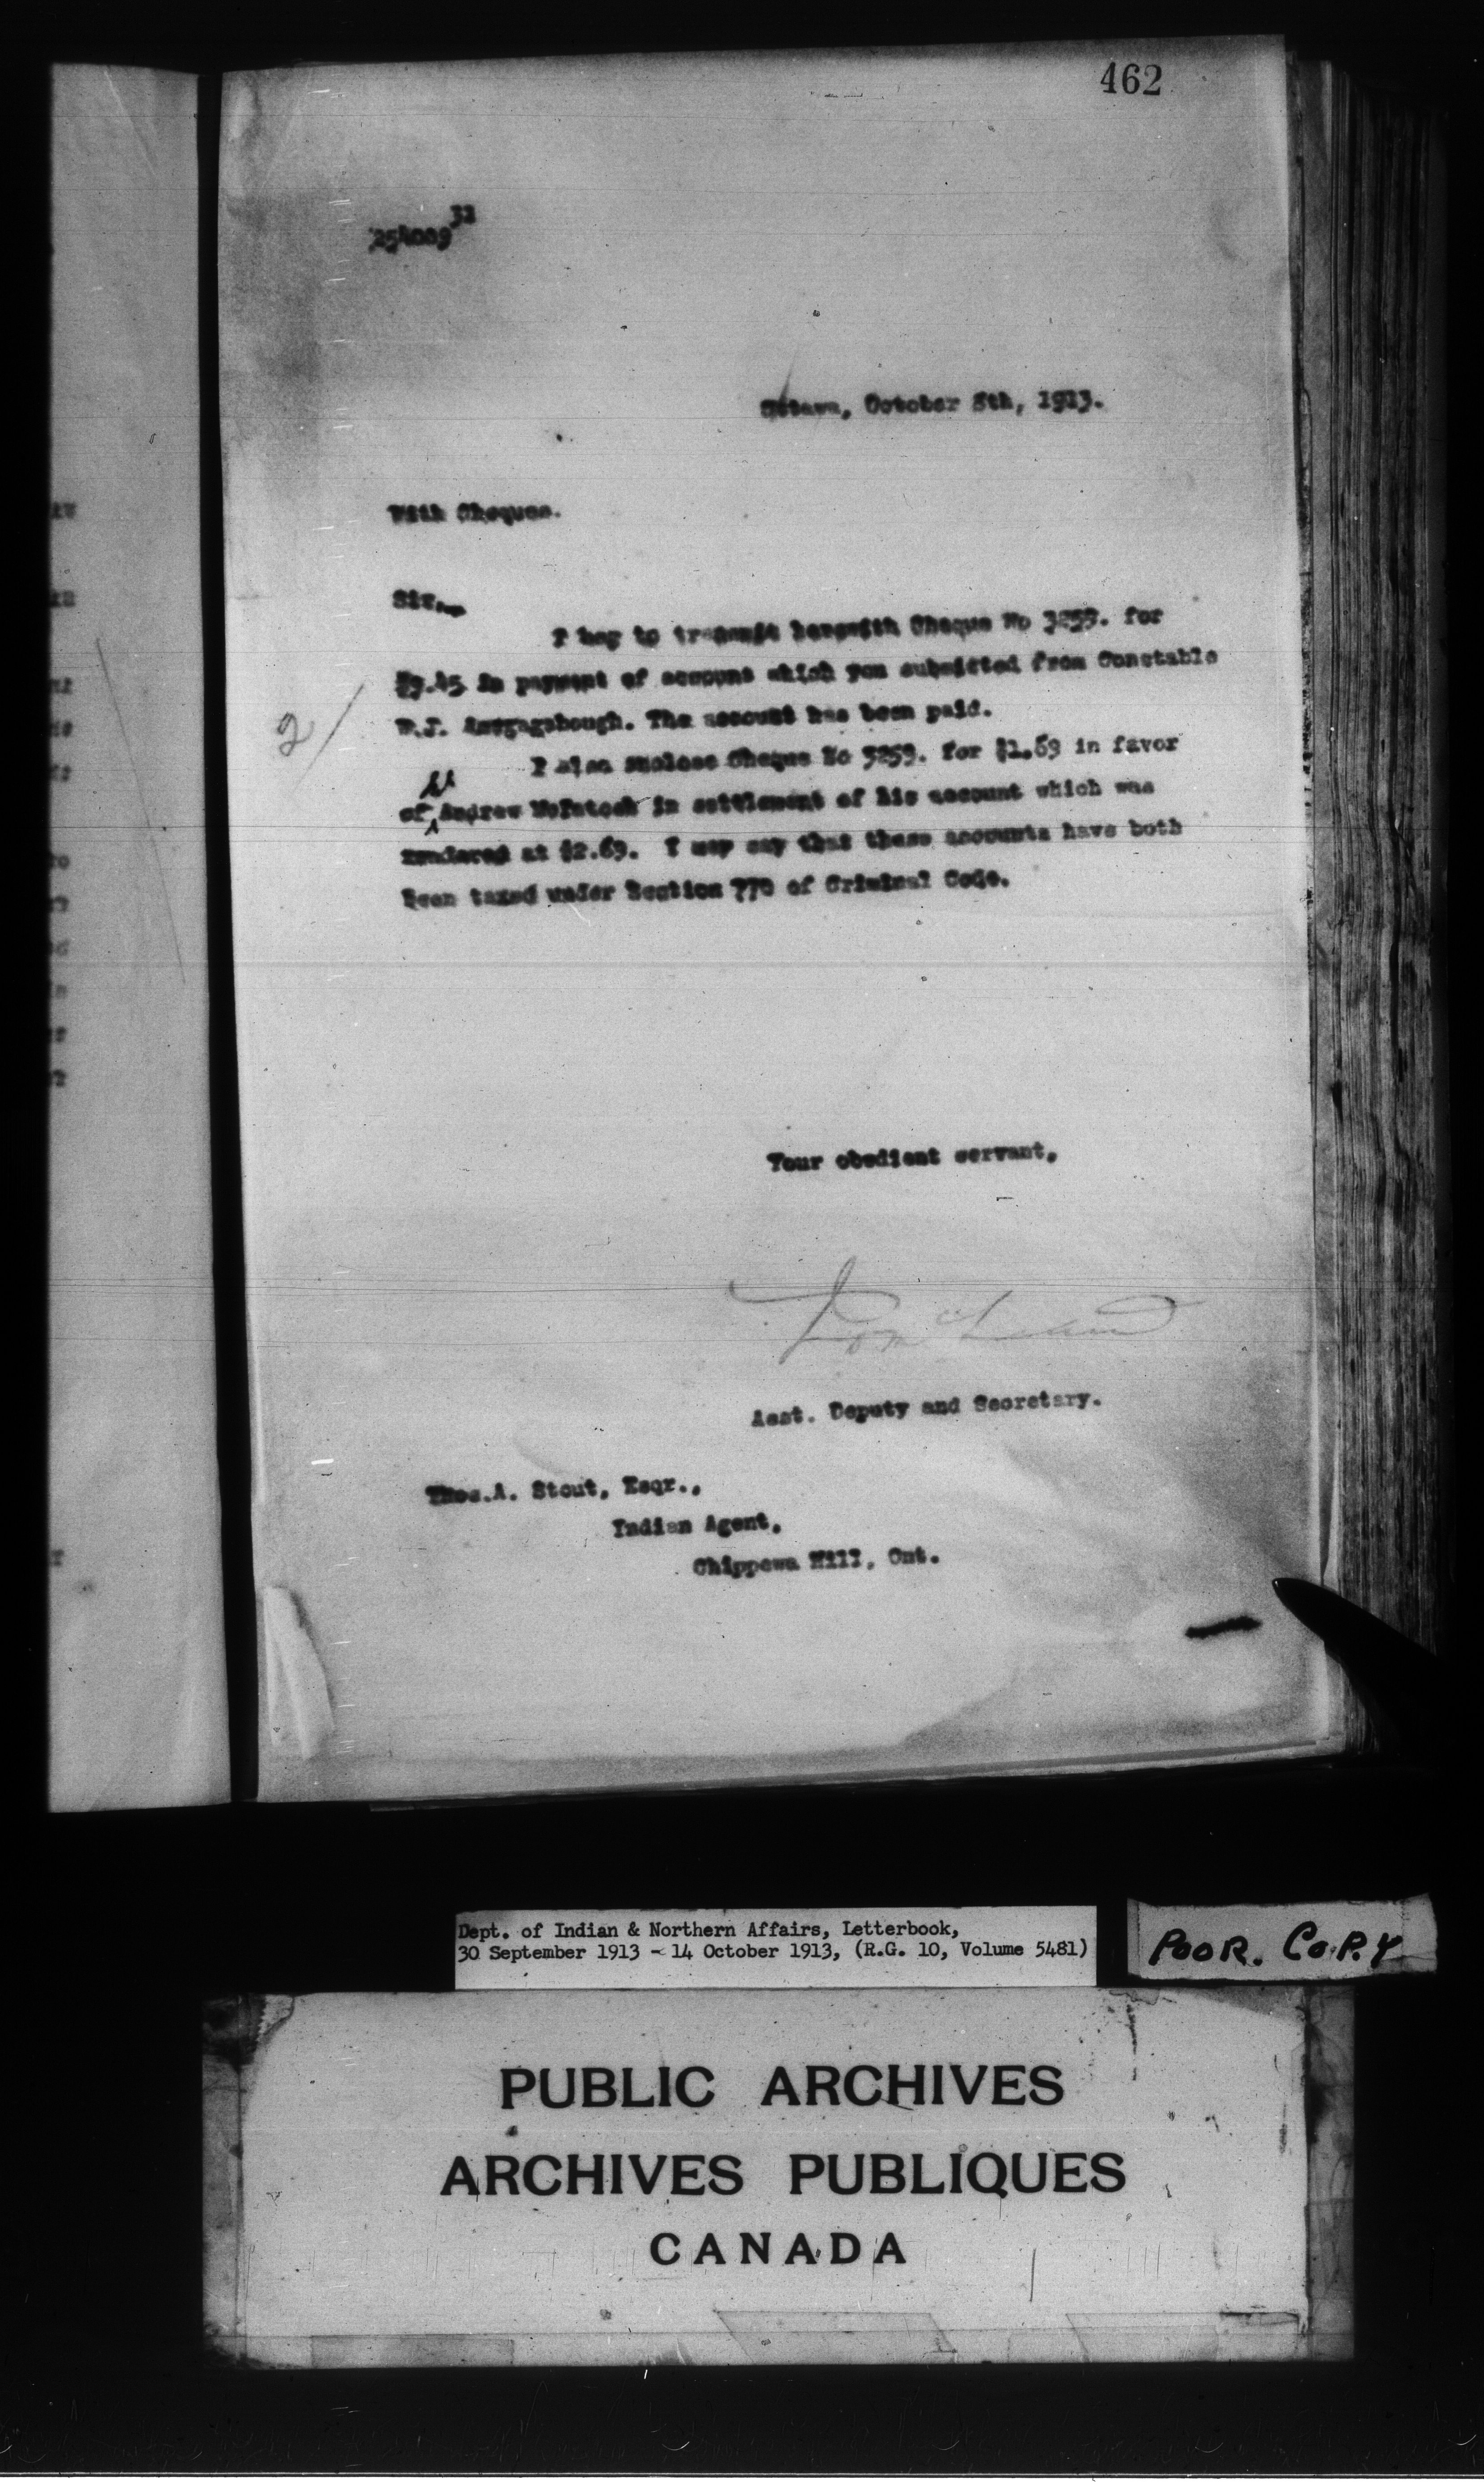 462
254009 32
Ottawa, October 8th, 1913.
With Cheques.
Sir,-
I beg to transmit herewith Cheque No 3258. for
in payment of account which you submitted from Constable
W.J. The account has been paid.
I also enclose Cheque No 3259. for $1.69 in favor
of Andrew McIntosh in settlement of his account which was
rendered at $2.69. I may say that these accounts have both
been taxed under Section 770 of Criminal Code.
2/
Your obedient servant,
Asst. Deputy and Secretary.
Thos.A. Stout, Esqr.,
Indian Agent,
Chippewa Hill, Ont.
Dept. of Indian & Northern Affairs, Letterbook,
30 September 1913 - 14 October 1913, (R.G. 10, Volume 5481)
POOR. COPY
PUBLIC ARCHIVES
ARCHIVES PUBLIQUES
CANADA